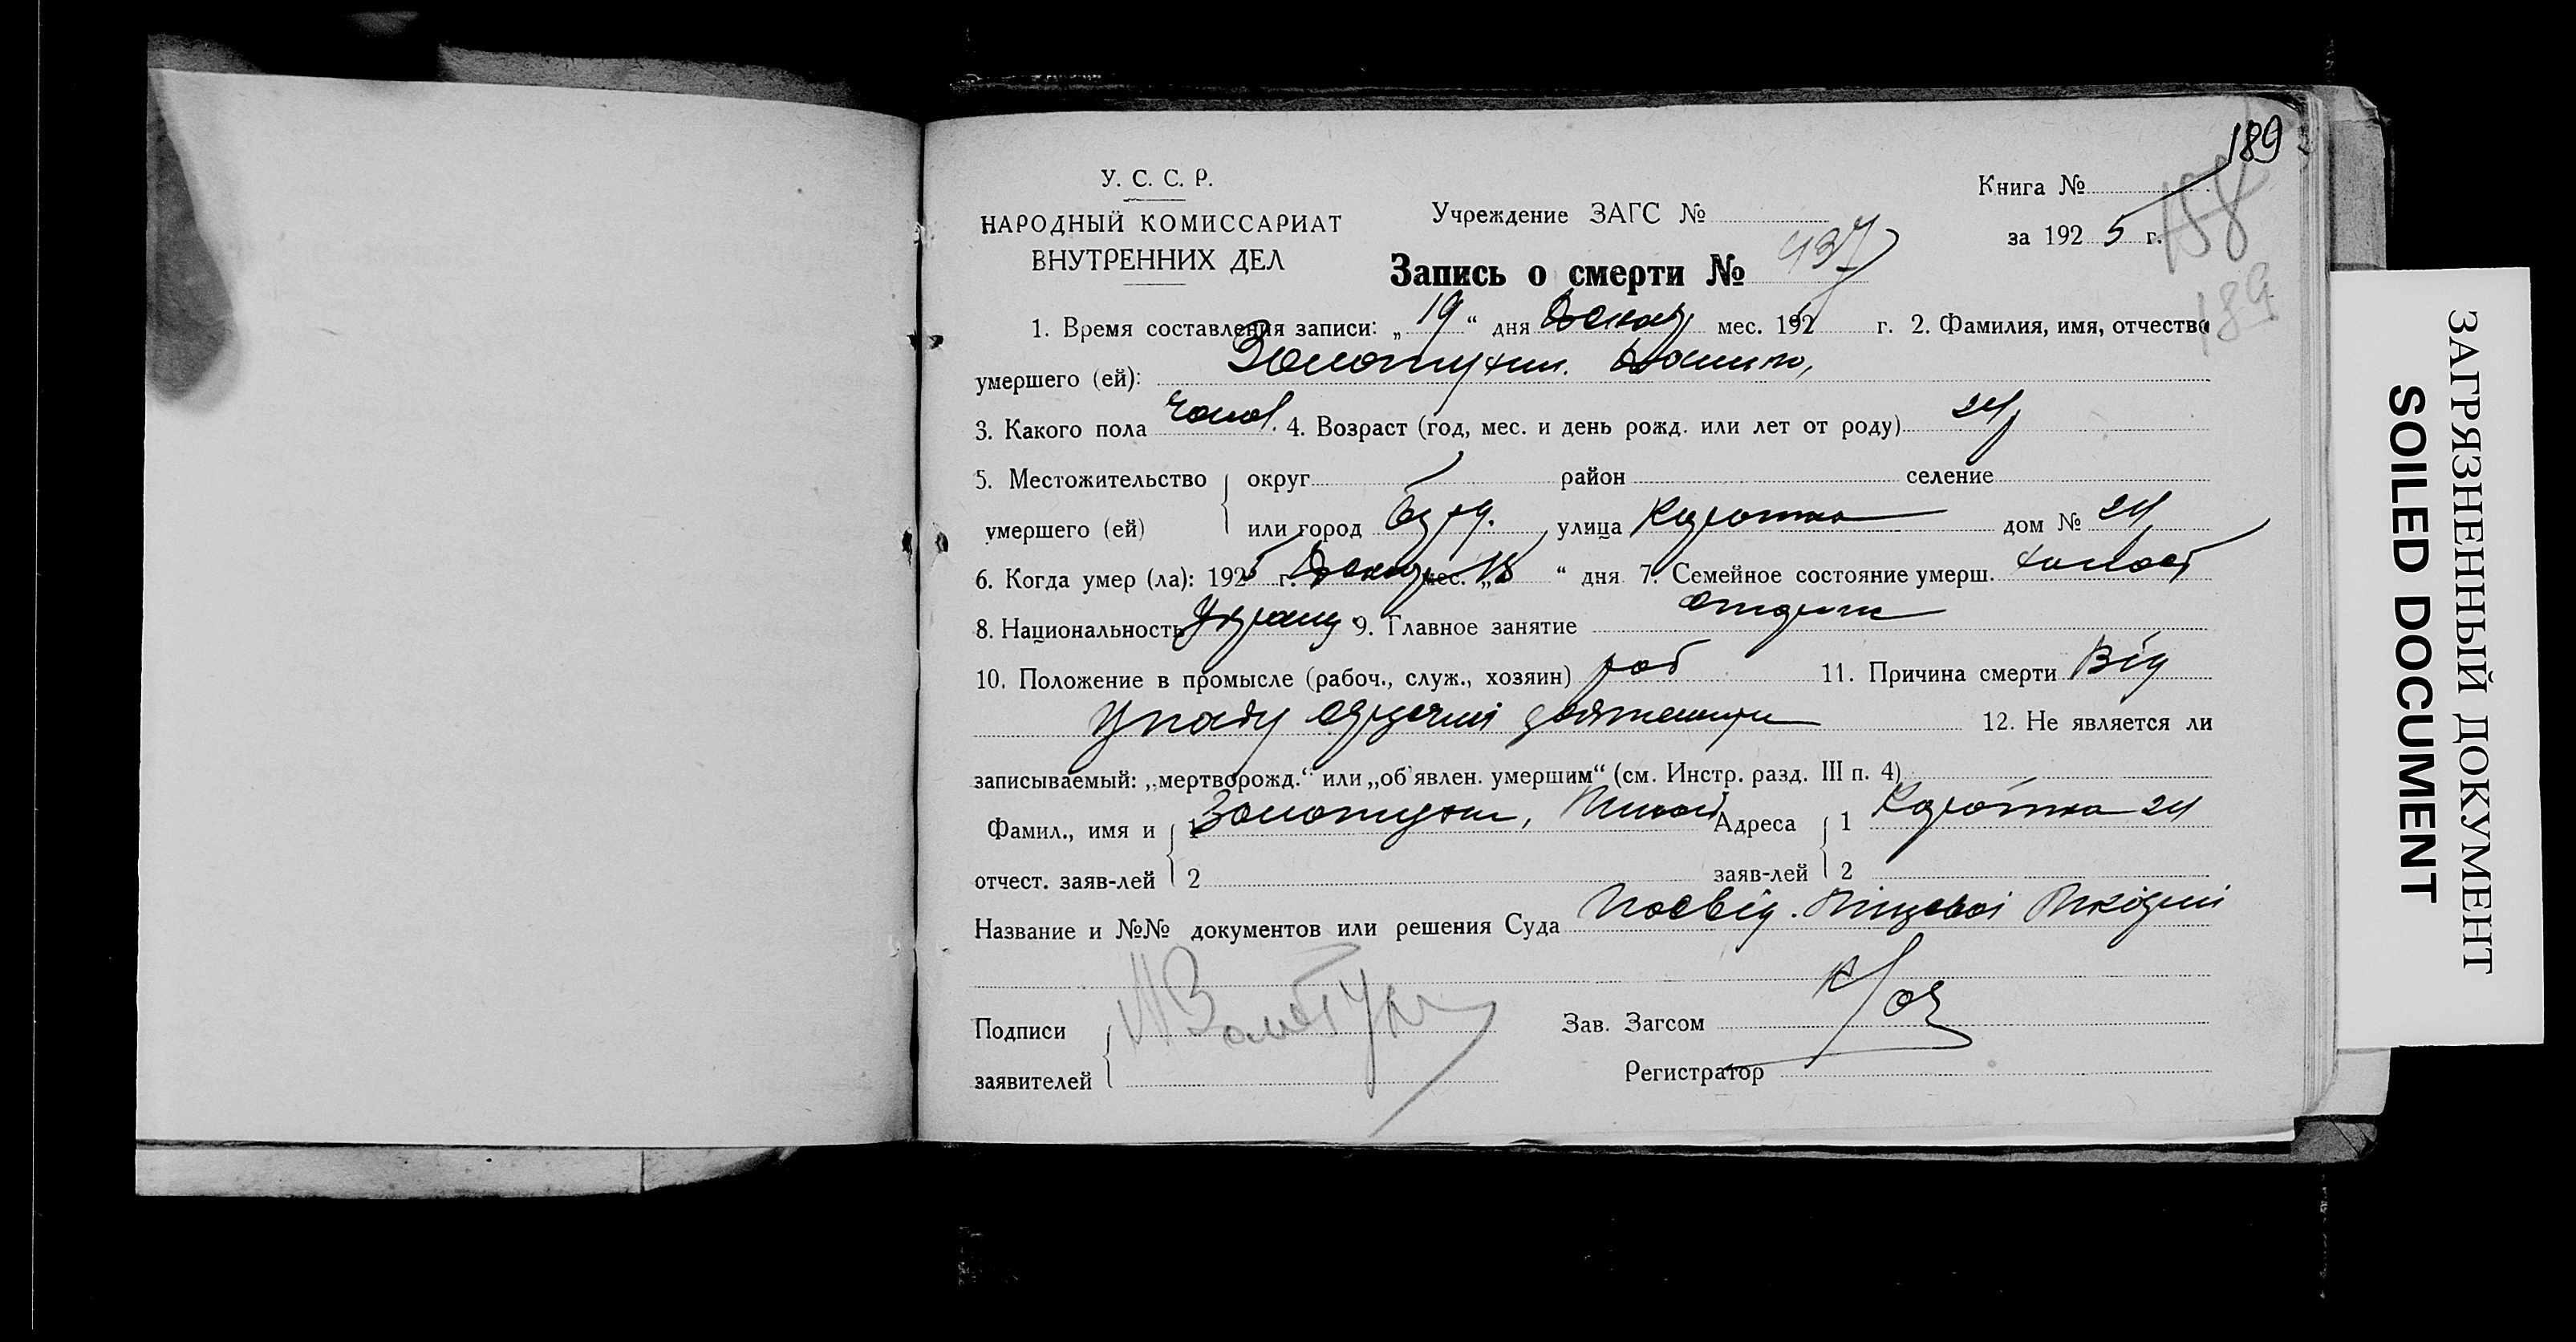 189
У. С. С. Р.
НАРОДНЫЙ КОМИССАРИАТ
ВНУТРЕННИХ ДЕЛ
Учреждение ЗАГС №
Книга №
158
за 1925 г.
189
Запись о смерти № 437
1. Время составления записи: „19“ дня Декаб мес. 192 г. 2. Фамилия, имя, отчество
умершего (ей): Золотухин.
3. Какого пола чолов. 4. Возраст (год, мес. и день рожд. или лет от роду) 24
5. Местожительство округ район селение
умершего (ей) или город улица дом № 24
6. Когда умер (ла): 1925 г. Декаб мес. „18“ дня 7. Семейное состояние умерш. холост
8. Национальность 9. Главное занятие
10. Положение в промысле (рабоч., служ., хозяин) роб 11. Причина смерти Від
упаду сердечної 12. Не является ли
записываемый: „мертворожд.“ или „об'явлен. умершим“ (см. Инстр. разд. III п. 4)
Фамил., имя и 1 Золотухин, Адреса 1 24
отчест. заяв-лей 2 заяв-лей 2
Название и №№ документов или решения Суда Посвід.
Подписи
заявителей
Зав. Загсом
Регистратор
ЗАГРЯЗНЕННЫЙ ДОКУМЕНТ
SOILED DOCUMENT